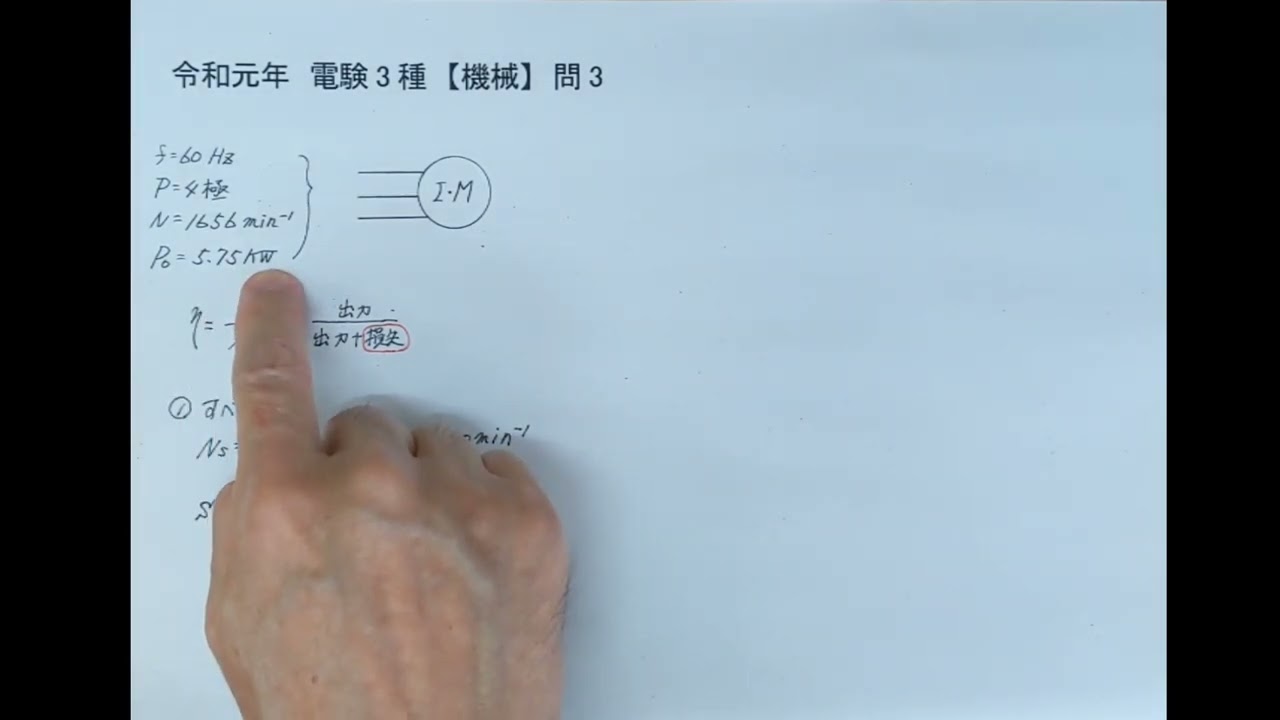 令和元年 電験3種【機械】 問3
f=60 Hz
P=4極
N=1656 min⁻¹
P₀=5.75KW
I・M
η=
出力
出力+損失
① すべ
Ns=
min⁻¹
S